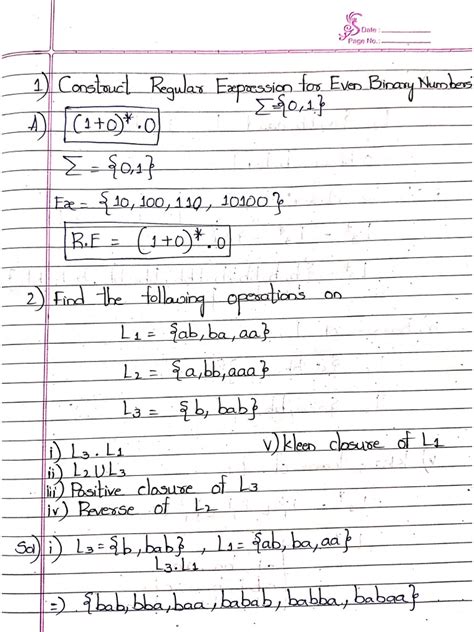 Date:
Page No.:
1) Construct Regular Expression for Even Binary Numbers
Σ={0,1}
A) (1+0)*.0
Σ = {0,1}
Ex = {10, 100, 110, 10100}
R.E = (1+0)*.0
2) Find the following operations on
L1 = {ab, ba, aa}
L2 = {a, bb, aaa}
L3 = {b, bab}
i) L3 . L1
v) kleen closure of L1
ii) L2 U L3
iii) Positive closure of L3
iv) Reverse of L2
Sol) i) L3 = {b, bab} , L1 = {ab, ba, aa}
L3.L1
=> {bab, bba, baa, babab, babba, babaa}